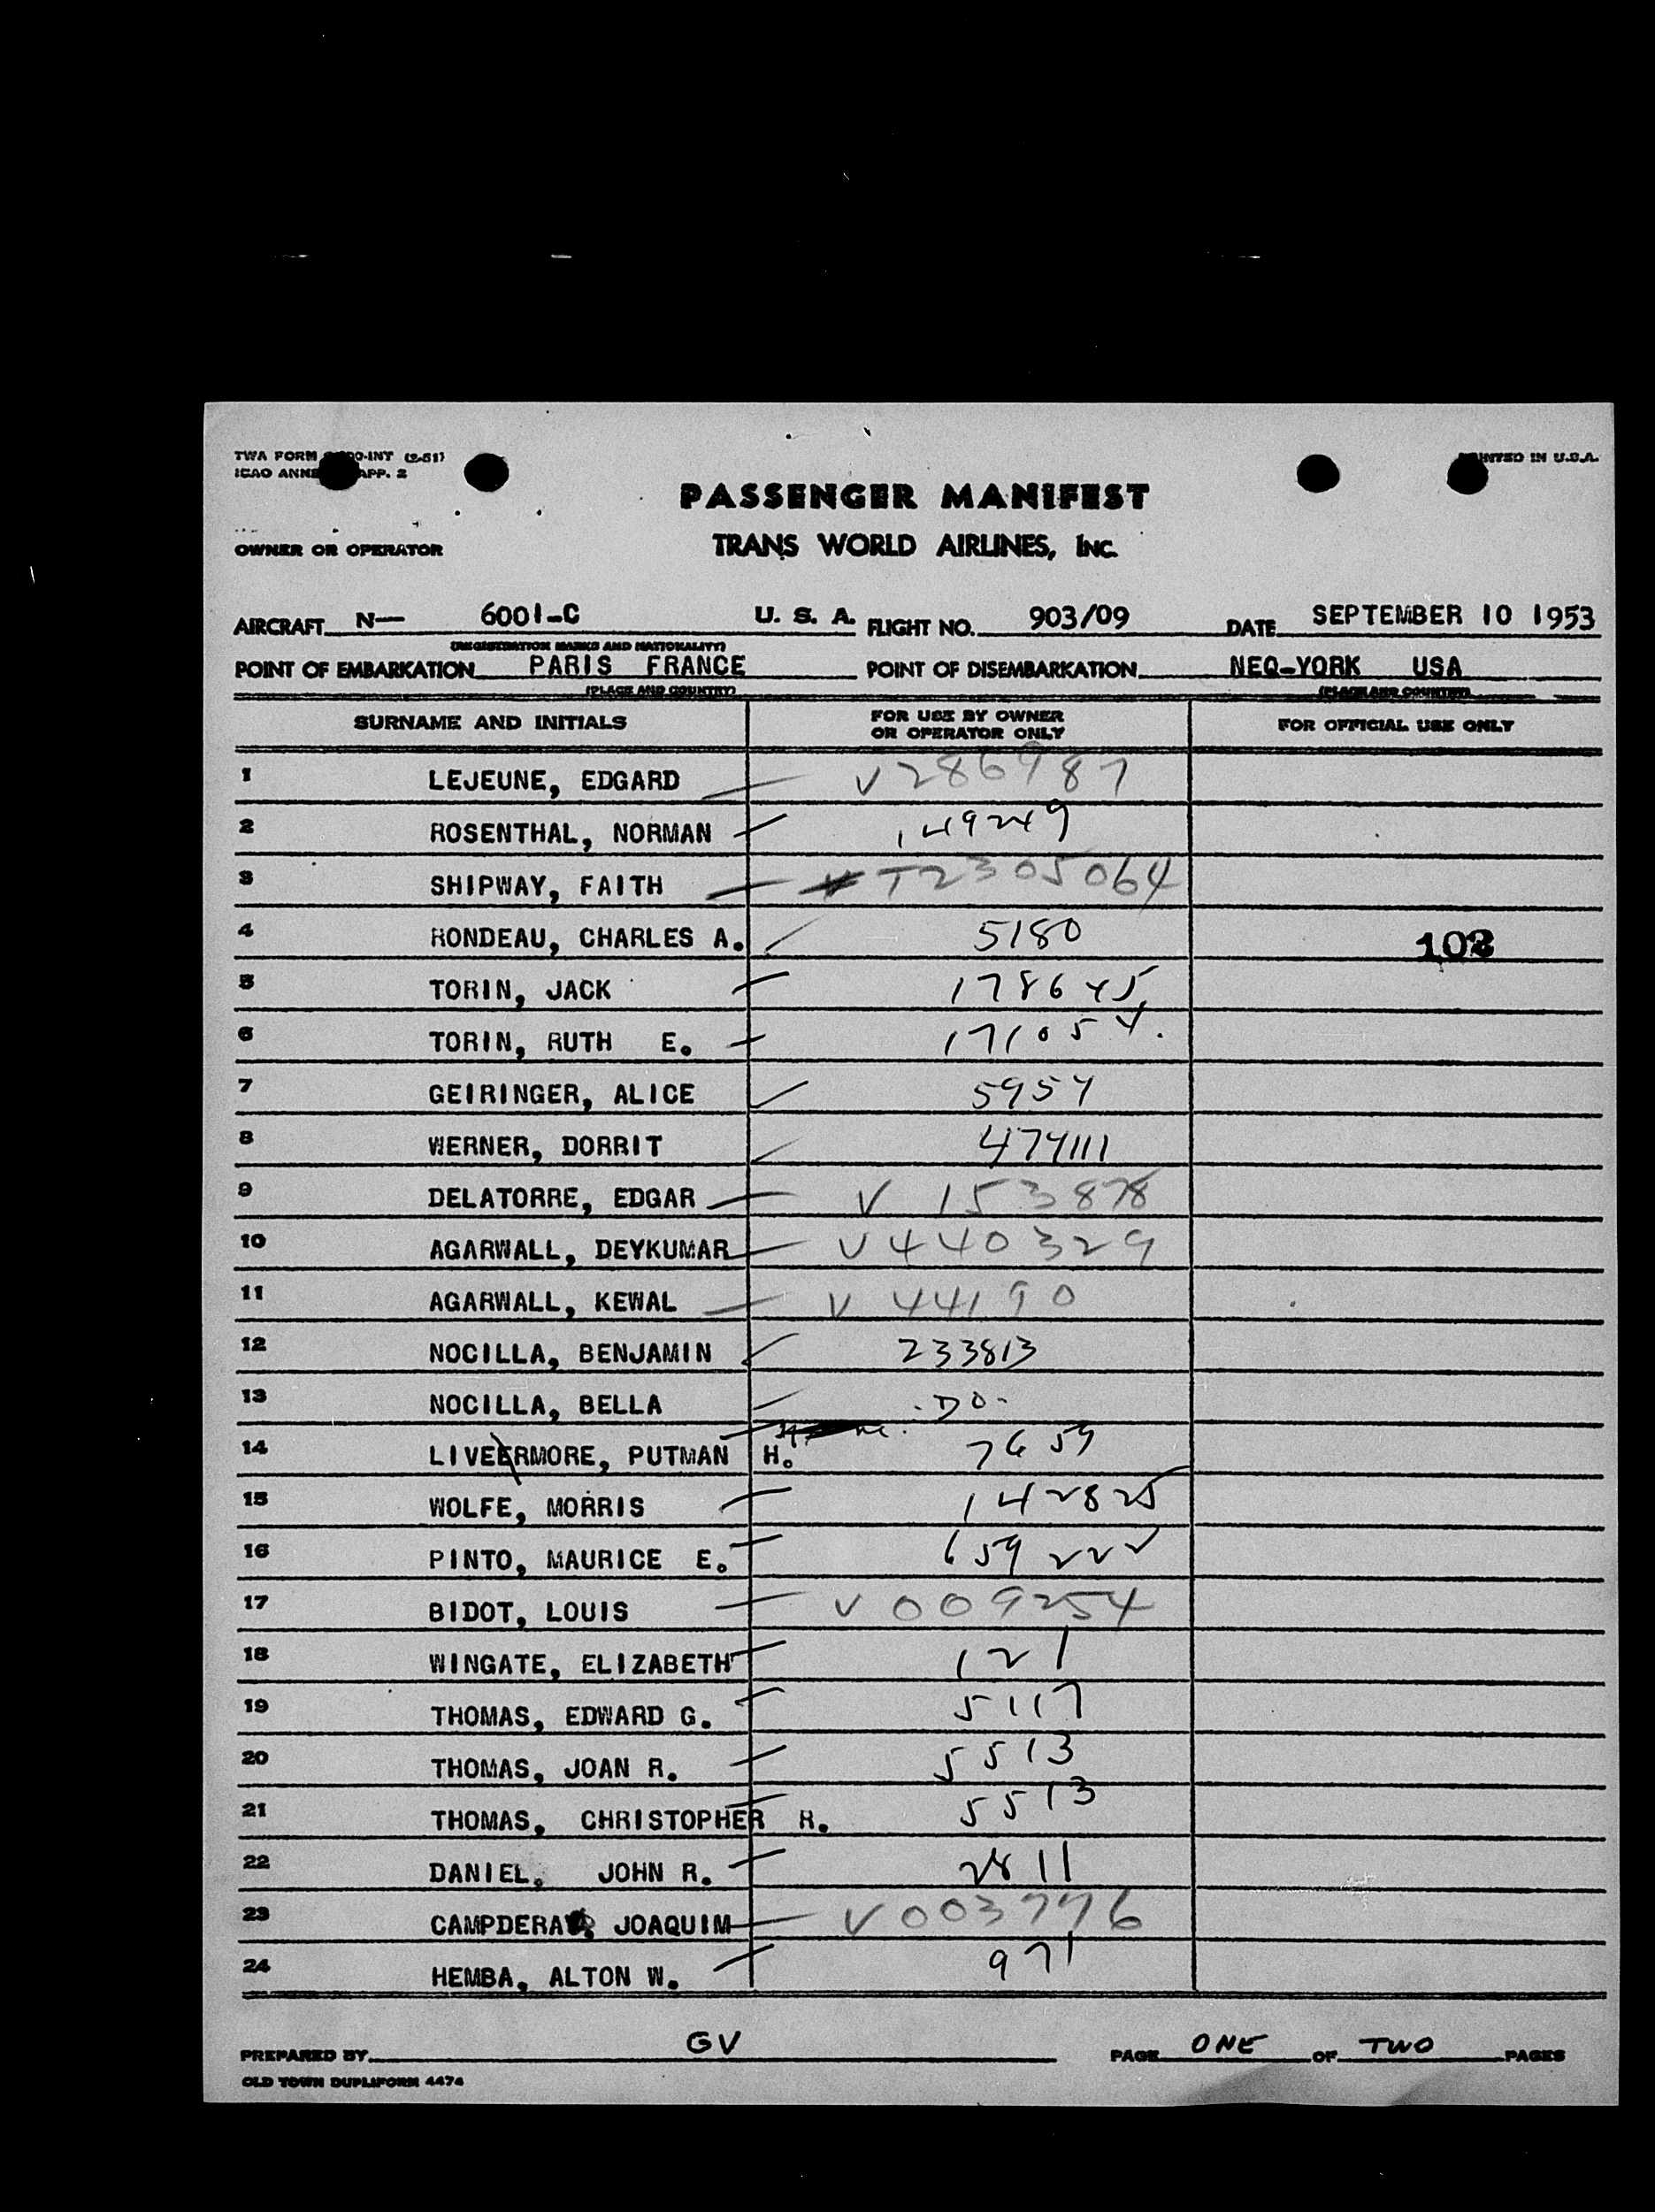 TWA FORM O-INT (2-51)
ICAO ANNE APP. 2
PRINTED IN U.S.A.
PASSENGER MANIFEST
OWNER OR OPERATOR TRANS WORLD AIRLINES, INC.
AIRCRAFT N— 6001-C U. S. A. FLIGHT NO. 903/09 DATE SEPTEMBER 10 1953
(REGISTRATION MARKS AND NATIONALITY)
POINT OF EMBARKATION PARIS FRANCE POINT OF DISEMBARKATION NEQ-YORK USA
(PLACE AND COUNTRY) (PLACE AND COUNTRY)
SURNAME AND INITIALS FOR USE BY OWNER OR OPERATOR ONLY FOR OFFICIAL USE ONLY
1 LEJEUNE, EDGARD V286987
2 ROSENTHAL, NORMAN 149249
3 SHIPWAY, FAITH T2305064
4 RONDEAU, CHARLES A. 5180 102
5 TORIN, JACK 178645
6 TORIN, RUTH E. 171054.
7 GEIRINGER, ALICE 5954
8 WERNER, DORRIT 474111
9 DELATORRE, EDGAR V 153878
10 AGARWALL, DEYKUMAR V440329
11 AGARWALL, KEWAL V 44190
12 NOCILLA, BENJAMIN 233813
13 NOCILLA, BELLA -DO-
14 LIVEERMORE, PUTMAN H. 7659
15 WOLFE, MORRIS 142825
16 PINTO, MAURICE E. 659222
17 BIDOT, LOUIS V009254
18 WINGATE, ELIZABETH 121
19 THOMAS, EDWARD G. 5117
20 THOMAS, JOAN R. 5513
21 THOMAS, CHRISTOPHER R. 5513
22 DANIEL, JOHN R. 2811
23 JOAQUIM V003776
24 HEMBA, ALTON W. 971
PREPARED BY GV PAGE ONE OF TWO PAGES
OLD TOWN DUPLIFORM 4474